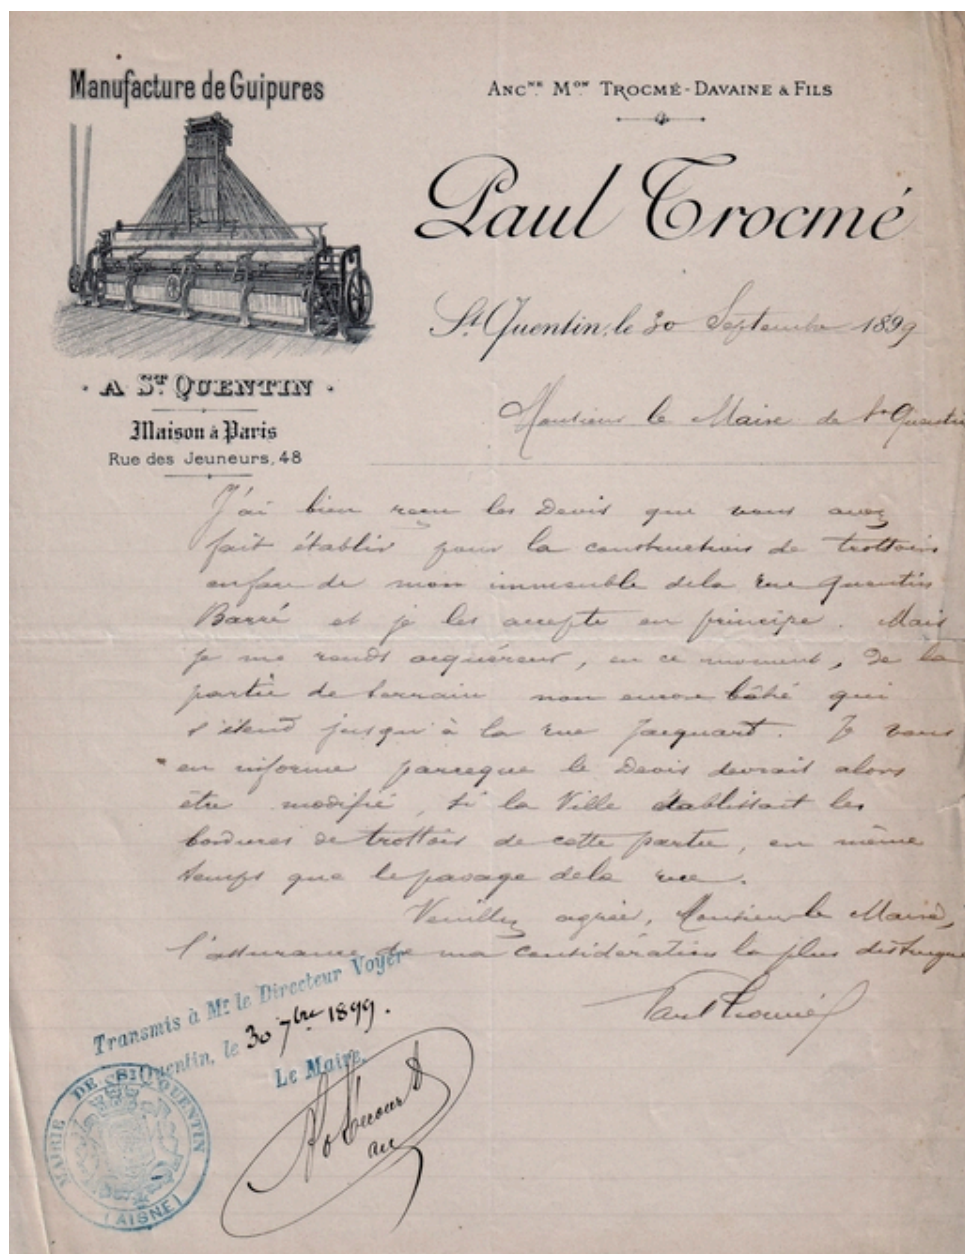 Manufacture de Guipures
Anc.ne M.on Trocmé-Davaine & Fils
Paul Trocmé
St Quentin, le 30 Septembre 1899
· A St Quentin ·
Maison à Paris
Rue des Jeuneurs, 48
Monsieur le Maire de St Quentin
J'ai bien reçu les Devis que vous avez
fait établir pour la construction de trottoirs
en face de mon immeuble de la rue Quentin
Barré et je les accepte en principe. Mais
je me rends acquéreur, en ce moment, de la
partie de terrain non encore bâtie qui
s'étend jusqu'à la rue Jacquart. Je vous
en informe parceque le Devis devrait alors
être modifié, si la Ville établissait les
bordures de trottoir de cette partie, en même
temps que le pavage de la rue.
Veuillez agréer, Monsieur le Maire,
l'assurance de ma considération la plus distinguée
Paul Trocmé
Transmis à Mr. le Directeur Voyer
St Quentin, le 30 7bre 1899.
Le Maire,
MAIRIE DE St QUENTIN
(AISNE)